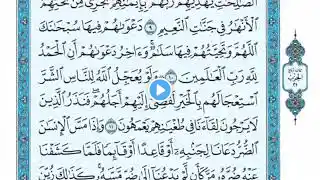 الصَّـٰلِحَـٰتِ يَهْدِيهِمْ رَبُّهُم بِإِيمَـٰنِهِمْ تَجْرِى مِن تَحْتِهِمُ
الْأَنْهَـٰرُ فِى جَنَّـٰتِ النَّعِيمِ ٩ دَعْوَىٰهُمْ فِيهَا سُبْحَـٰنَكَ
اللَّهُمَّ وَتَحِيَّتُهُمْ فِيهَا سَلَـٰمٌ وَءَاخِرُ دَعْوَىٰهُمْ أَنِ الْحَمْدُ
لِلَّهِ رَبِّ الْعَـٰلَمِينَ ١٠ وَلَوْ يُعَجِّلُ اللَّهُ لِلنَّاسِ الشَّرَّ
اسْتِعْجَالَهُم بِالْخَيْرِ لَقُضِىَ إِلَيْهِمْ أَجَلُهُمْ فَنَذَرُ الَّذِينَ
لَا يَرْجُونَ لِقَآءَنَا فِى طُغْيَـٰنِهِمْ يَعْمَهُونَ ١١ وَإِذَا مَسَّ الْإِنسَـٰنَ
الضُّرُّ دَعَانَا لِجَنۢبِهِۦٓ أَوْ قَاعِدًا أَوْ قَآئِمًا فَلَمَّا كَشَفْنَا
عَنْهُ ضُرَّهُۥ مَرَّ كَأَن لَّمْ يَدْعُنَآ إِلَىٰ ضُرٍّ مَّسَّهُۥ كَذَٰلِكَ زُيِّنَ